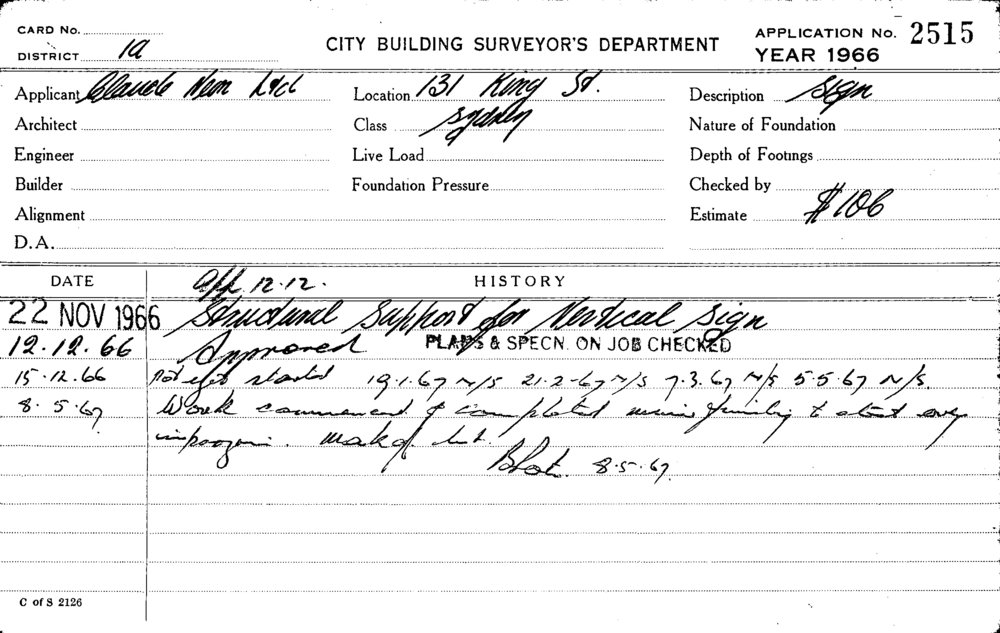 CARD No.
DISTRICT 1a
CITY BUILDING SURVEYOR'S DEPARTMENT
APPLICATION No. 2515
YEAR 1966
Applicant Claude Neon Ltd
Location 131 King St.
Description Sign
Architect
Class Sydney
Nature of Foundation
Engineer
Live Load
Depth of Footings
Builder
Foundation Pressure
Checked by
Alignment
Estimate $106
D.A.
DATE
App. 12.12.
HISTORY
22 NOV 1966 Structural Support for Vertical Sign
12.12.66 Approved PLANS & SPECN. ON JOB CHECKED
15.12.66 Not yet started 19.1.67 N/S 21.2.67 N/S 7.3.67 N/S 5.5.67 N/S.
8.5.67 Work commenced & completed
8.5.67
C of S 2126